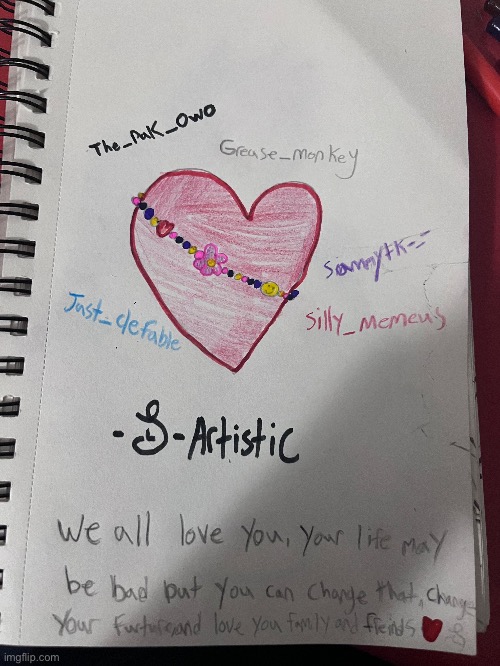 The_PaK_OwO
Grease_monkey
Sammytk--
Just_clefable
Silly_Memeus
-S-Artistic
We all love you, your life may
be bad but you can change that, change
your furture, and love you family and friends
imgflip.com